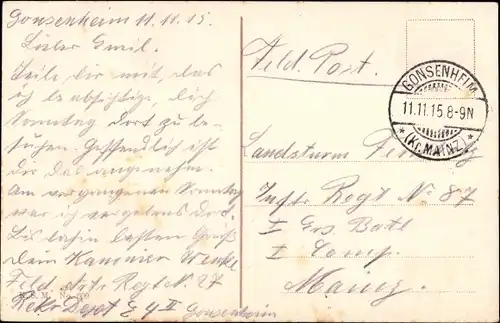 Gonsenheim 11.11.15.
Lieber Emil.
Teile dir mit, das
ich beabsichtige, dich
Sonntag dort zu be-
suchen. Hoffendlich ist
dir das angenehm.
Am vergangenen Sonntag
war ich vergebens dort.
Bis dahin besten Gruß
dein Kammer
Feld. Artr Regt N. 27
Rekr Depot II Gonsenheim
Feld. Post.
GONSENHEIM
11.11.15.8-9N
* (Kr. MAINZ) *
Landsturm
Inftr Regt No 87
I Ers. Batl
I Comp.
Mainz.